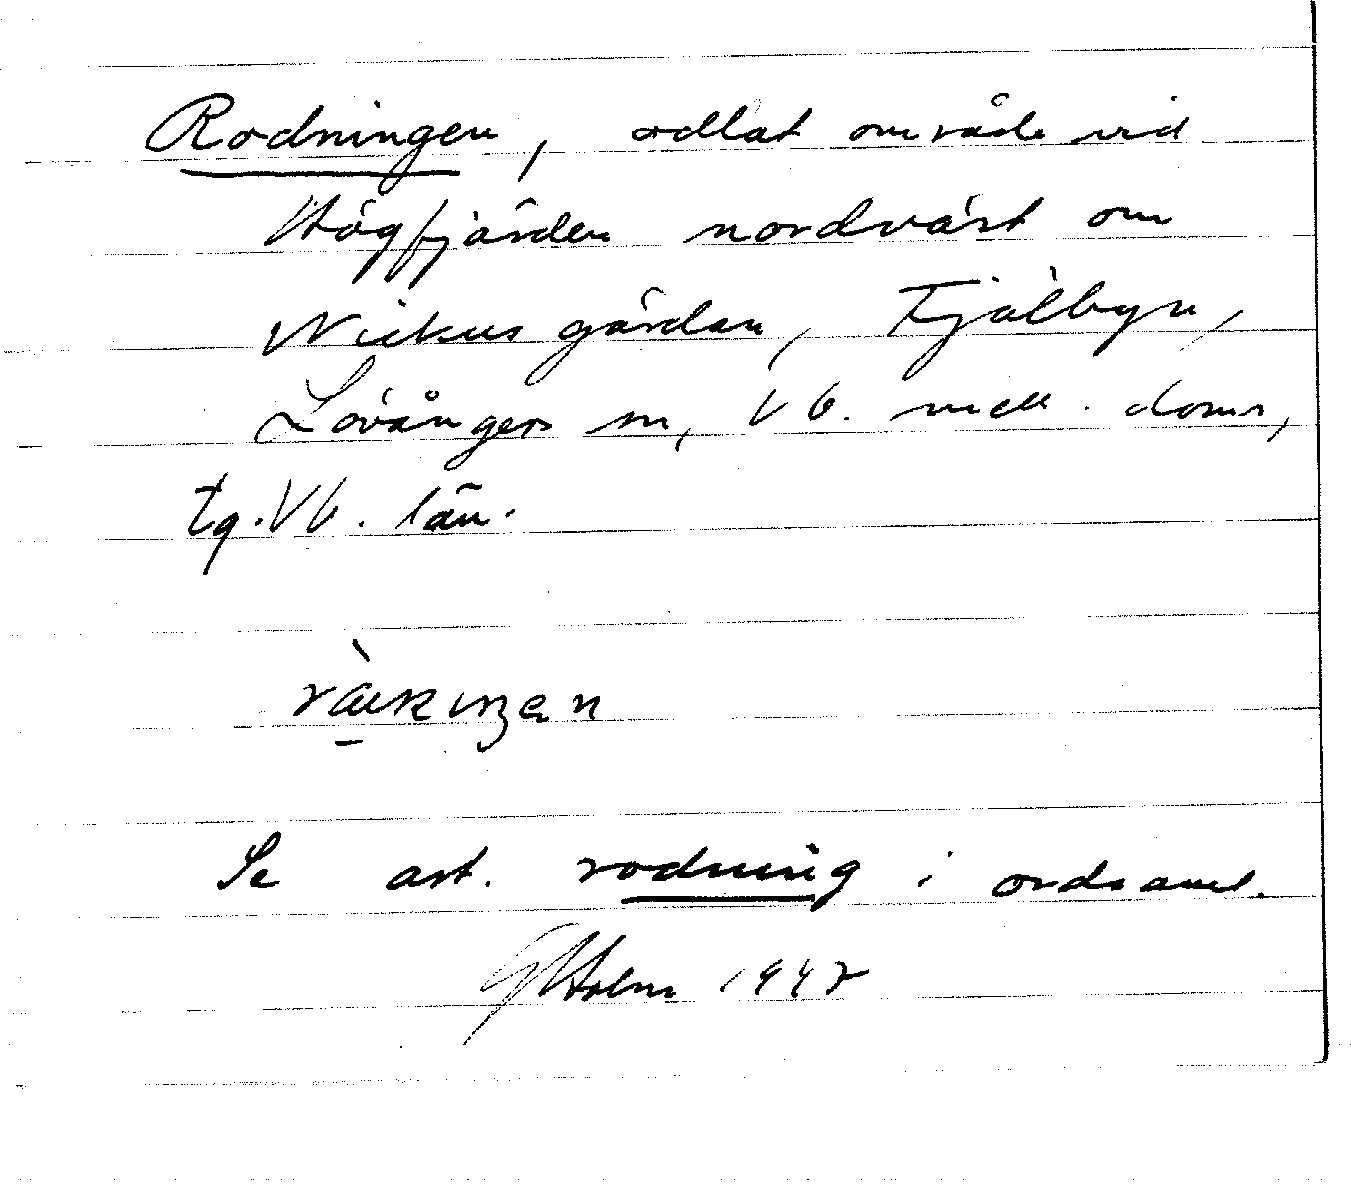 Rodningen, odlat område vid
Högfjärden nordväst om
Nickusgårdan, Fjälbyn,
Lövångers sn, Vb. mell. doms,
tg. Vb. län.
Se art. rodning i ordsaml.
GHolm 1947